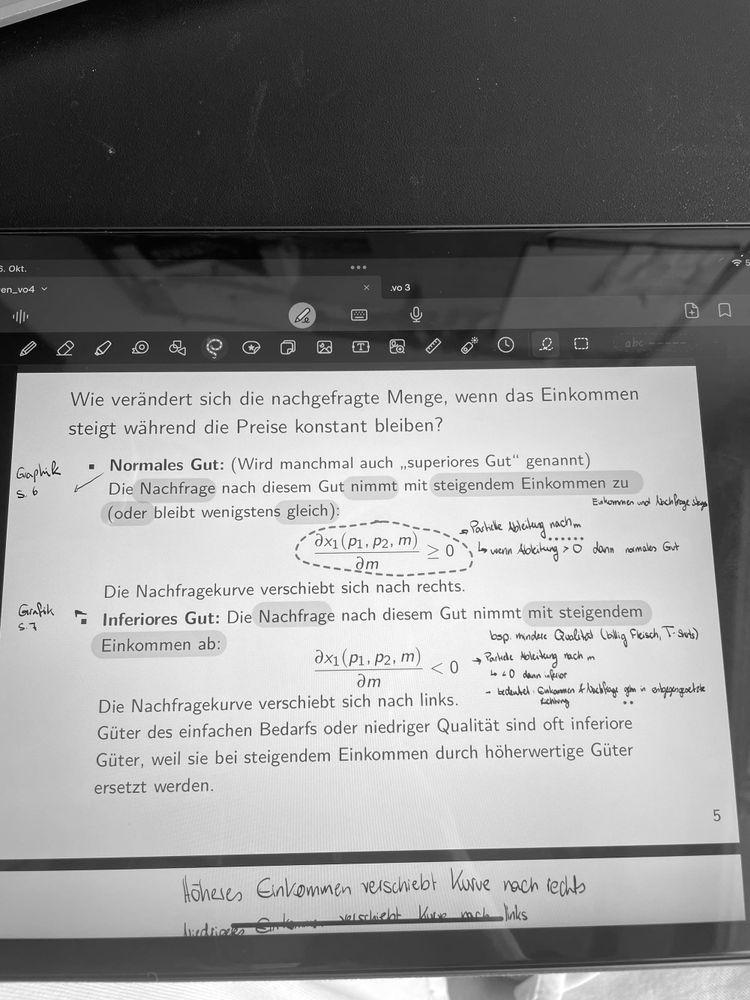 6. Okt.
en_vo4
vo 3
abc
Wie verändert sich die nachgefragte Menge, wenn das Einkommen
steigt während die Preise konstant bleiben?
Graphik
s. 6
▪ Normales Gut: (Wird manchmal auch „superiores Gut“ genannt)
Die Nachfrage nach diesem Gut nimmt mit steigendem Einkommen zu
(oder bleibt wenigstens gleich):
Einkommen und Nachfrage
∂x₁(p₁, p₂, m) / ∂m ≥ 0
Partielle Ableitung nach m
↳ wenn Ableitung > 0 dann normales Gut
Die Nachfragekurve verschiebt sich nach rechts.
Grafik
s. 7
▪ Inferiores Gut: Die Nachfrage nach diesem Gut nimmt mit steigendem
Einkommen ab:
bsp. mindere Qualität (billig Fleisch, T-Shirts)
∂x₁(p₁, p₂, m) / ∂m < 0
→ Partielle Ableitung nach m
↳ < 0 dann inferior
- bedeutet Einkommen & Nachfrage gehn in entgegengesetzte
Richtung
Die Nachfragekurve verschiebt sich nach links.
Güter des einfachen Bedarfs oder niedriger Qualität sind oft inferiore
Güter, weil sie bei steigendem Einkommen durch höherwertige Güter
ersetzt werden.
5
Höheres Einkommen verschiebt Kurve nach rechts
niedrigeres Einkommen verschiebt Kurve nach links